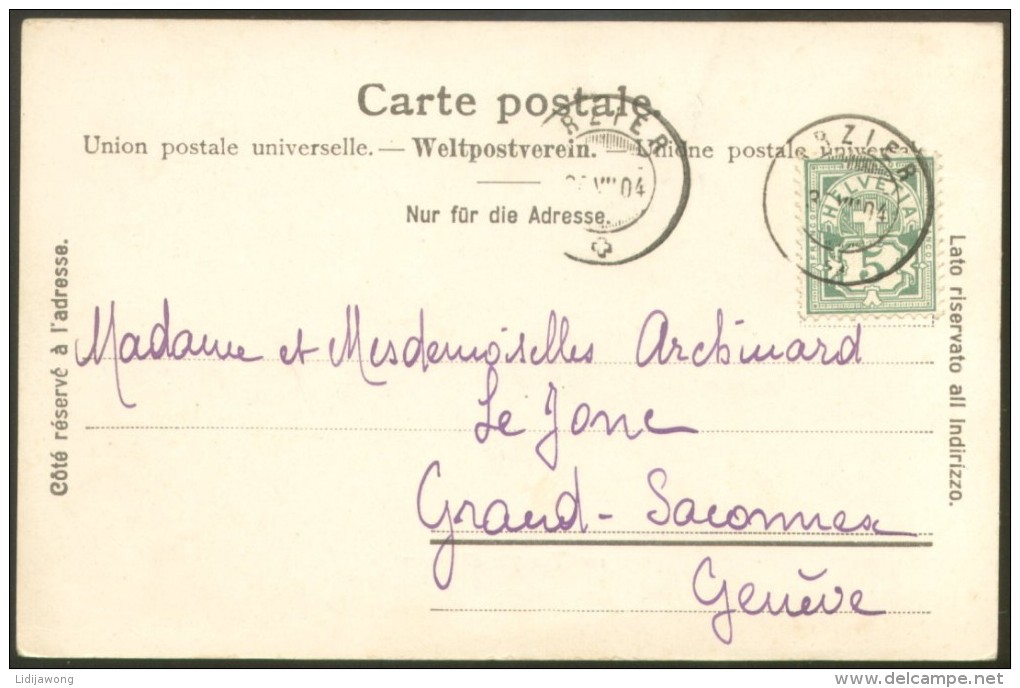 Carte postale.
Union postale universelle. — Weltpostverein. — Unione postale universale
Nur für die Adresse.
RZIER
VII 04
RZIER
VII 04
HELVETIA
FRANCO
5
Côté réservé à l'adresse.
Lato riservato all Indirizzo.
Madame et Mesdemoiselles Archinard
Le Jonc
Grand-Saconnex
Genève
Lidijawong
www.delcampe.net